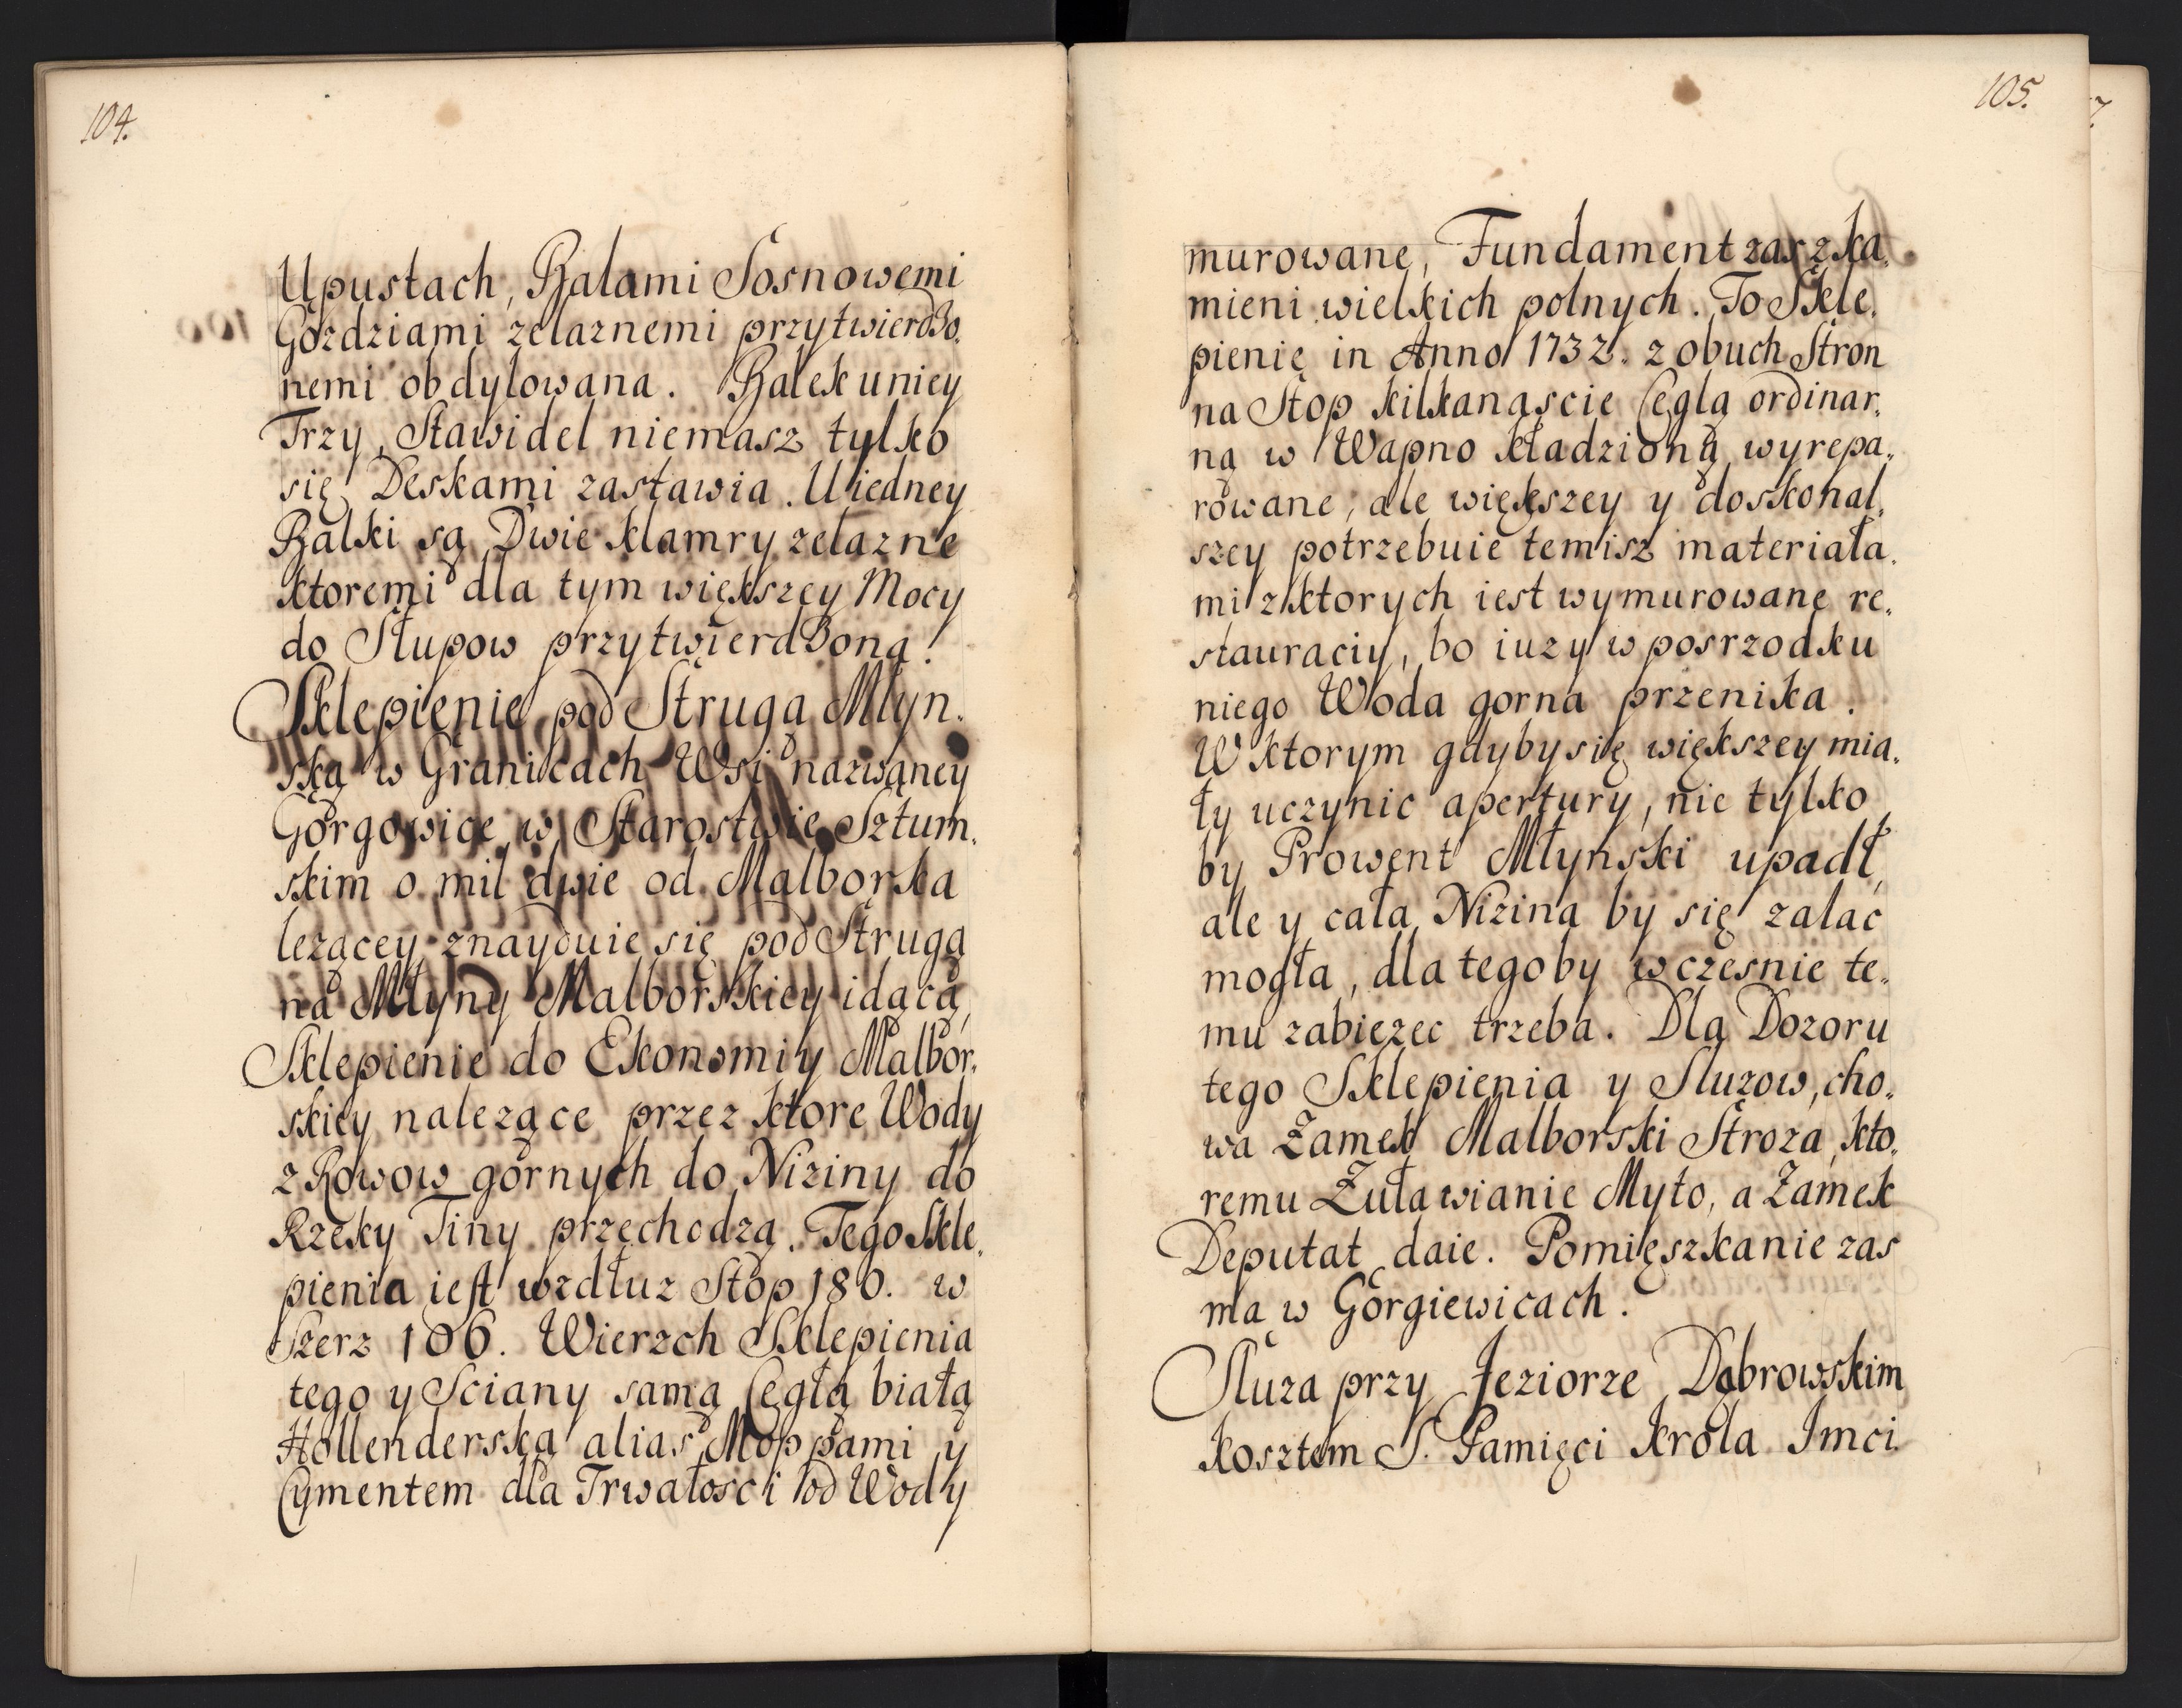 104.
Upustach, Balami Sosnowemi
Gozdziami zelaznemi przytwierdzo,
nemi obdylowana. Balek uniey
Trzy, Stawidel niemasz tylko
się Deskami zastawia. U iedney
Balki są Dwie klamry zelazne
ktoremi dla tym większey Mocy
do Słupow przytwierdzona.
Sklepienie pod Strugą Młyn,
ską w Granicach Wsi nazwaney
Gorgowice w Starostwie Sztum,
skim o mil dwie od Malborka
lezącey znayduie się pod Strugą
na Młyny Malborskiey idącą,
Sklepienie do Ekonomiy Malbor,
skiey nalezące przez ktore Wody
z Rowow gornych do Niziny do
Rzeky Tiny przechodzą. Tego Skle,
pienia iest wzdłuz Stop 180. w
Szerz 106. Wierzch Sklepienia
tego y Sciany samą Cegłą białą
Hollenderską alias Moppami y
Cymentem dla Trwałosci od Wody
105.
murowane, Fundament zas z ka,
mieni wielkich polnych. To Skle,
pienie in Anno 1732. z obuch Stron
na Stop kilkanąscie Ceglą ordinar,
ną w Wapno kładzioną wyrepa,
rowane, ale większey y doskonal,
szey potrzebuie temisz materiała,
mi z ktorych iest wymurowane re,
stauraciy, bo iuz y w posrzodku
niego Woda gorna przenika.
W ktorym gdyby się większey mia,
ły uczynic apertury, nie tylko
by Prowent Młynski upadł,
ale y cała Nizina by się zalac
mogła, dla tego by wczesnie te,
mu zabiezec trzeba. Dla Dozoru
tego Sklepienia y Sluzow, cho,
wa Zamek Malborski Stroza, kto,
remu Zuławianie Myto, a Zamek
Deputat daie. Pomięszkanie zas
ma w Gorgiewicach.
Sluza przy Jeziorze Dąbrowskim
kosztem S. Pamięci krola Imci